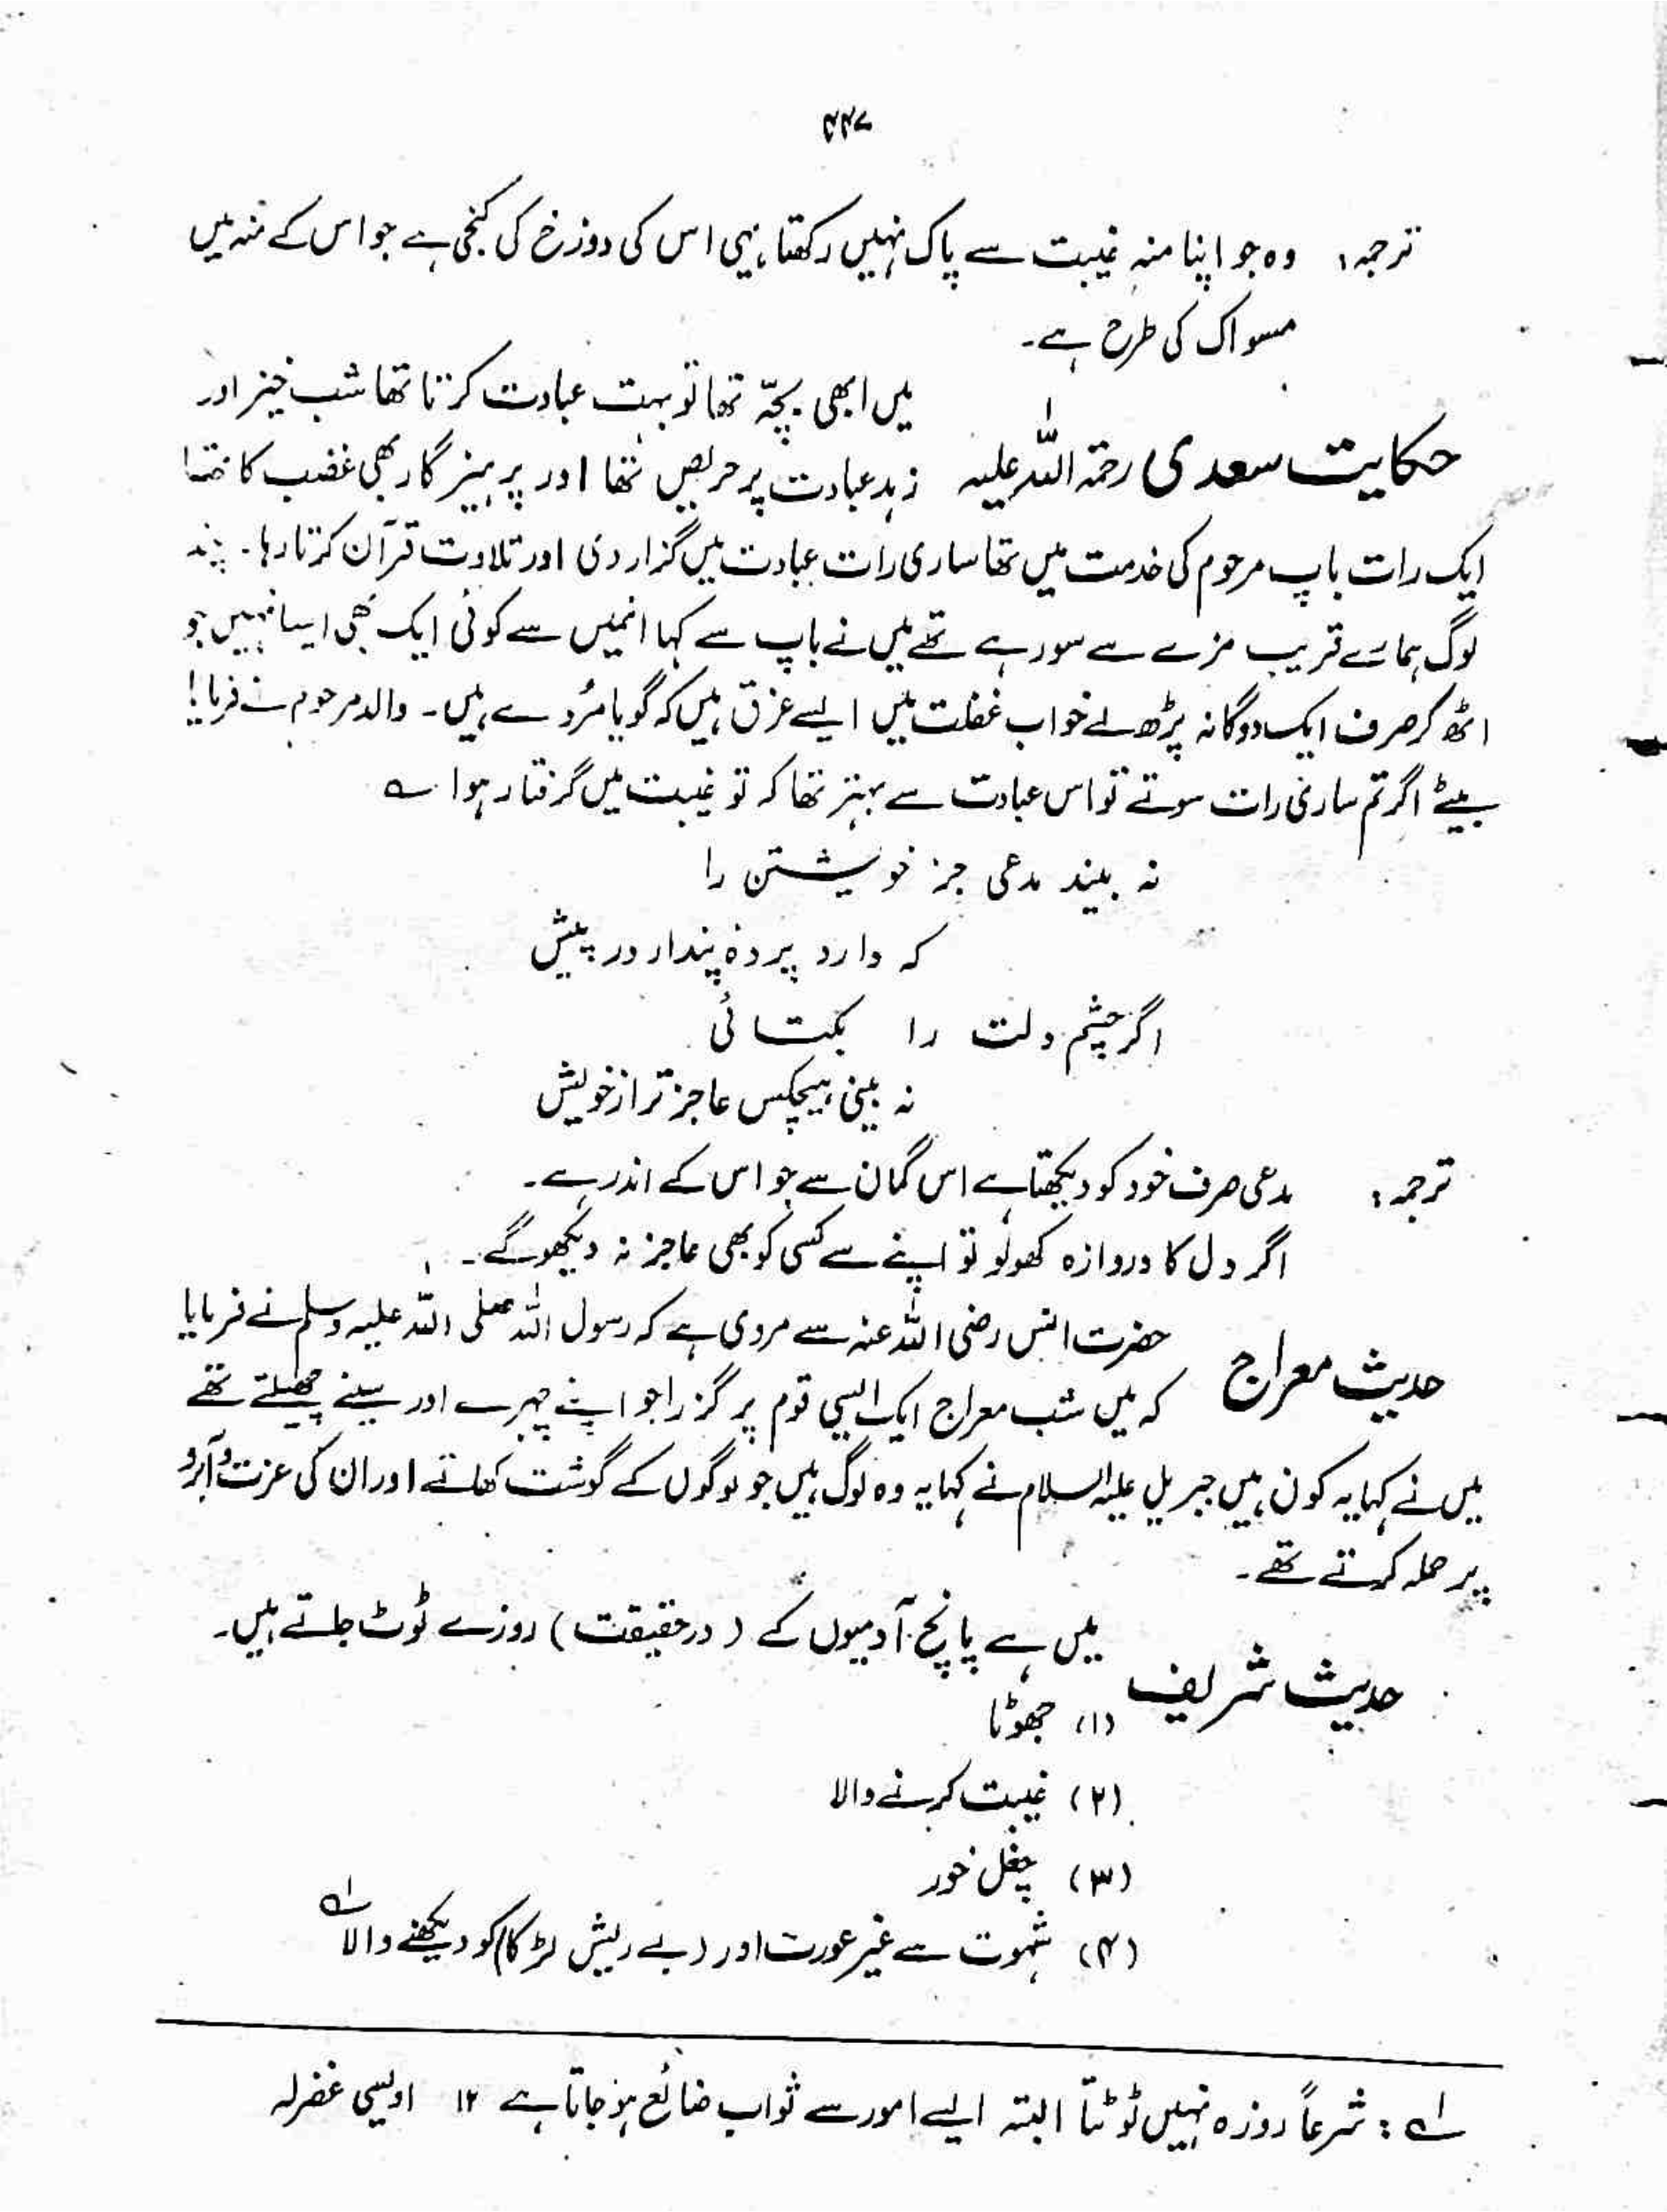 ۴۴۷
ترجمہ: وہ جو اپنا منہ غیبت سے پاک نہیں رکھتا یہی اس کی دوزخ کی کنجی ہے جو اس کے منہ میں
مسواک کی طرح ہے۔
میں ابھی بچّہ تھا تو بہت عبادت کرتا تھا شب خیز اور
حکایت سعدی رحمۃ اللہ علیہ زہد عبادت پر حریص تھا اور پرہیز گار بھی غضب کا تھا
ایک رات باپ مرحوم کی خدمت میں تھا ساری رات عبادت میں گزار دی اور تلاوت قرآن کرتا رہا۔ چند
لوگ ہمارے قریب مزے سے سو رہے تھے میں نے باپ سے کہا انمیں سے کوئی ایک بھی ایسا نہیں جو
اٹھ کر صرف ایک دوگانہ پڑھ لے خواب غفلت میں ایسے غرق ہیں کہ گویا مُردے ہیں۔ والد مرحوم نے فرمایا!
بیٹے اگر تم ساری رات سوتے تو اس عبادت سے بہتر تھا کہ تو غیبت میں گرفتار ہوا ؎
نہ بیند مدعی جز خویشتن را
کہ دارد پردۂ پندار در پیش
اگر چشم دلت را بکشائی
نہ بینی ہیچکس عاجز تر از خویش
ترجمہ: مدعی صرف خود کو دیکھتا ہے اس گمان سے جو اس کے اندر ہے۔
اگر دل کا دروازہ کھولو تو اپنے سے کسی کو بھی عاجز نہ دیکھو گے۔
حضرت انس رضی اللہ عنہ سے مروی ہے کہ رسول اللہ صلی اللہ علیہ وسلم نے فرمایا
حدیث معراج کہ میں شب معراج ایک ایسی قوم پر گزرا جو اپنے چہرے اور سینے چھیلتے تھے
میں نے کہا یہ کون ہیں جبریل علیہ السلام نے کہا یہ وہ لوگ ہیں جو لوگوں کے گوشت کھاتے اور ان کی عزت و آبرو
پر حملہ کرتے تھے۔
میں ہے پانچ آدمیوں کے (درحقیقت) روزے ٹوٹ جاتے ہیں۔
حدیث شریف
(۱) جھوٹا
(۲) غیبت کرنے والا
(۳) چغل خور
(۴) شہوت سے غیر عورت اور (بے ریش لڑکا) کو دیکھنے والا ؎۱
؎۱: شرعاً روزہ نہیں ٹوٹتا البتہ ایسے امور سے ثواب ضائع ہو جاتا ہے ۱۲ اویسی غفرلہ